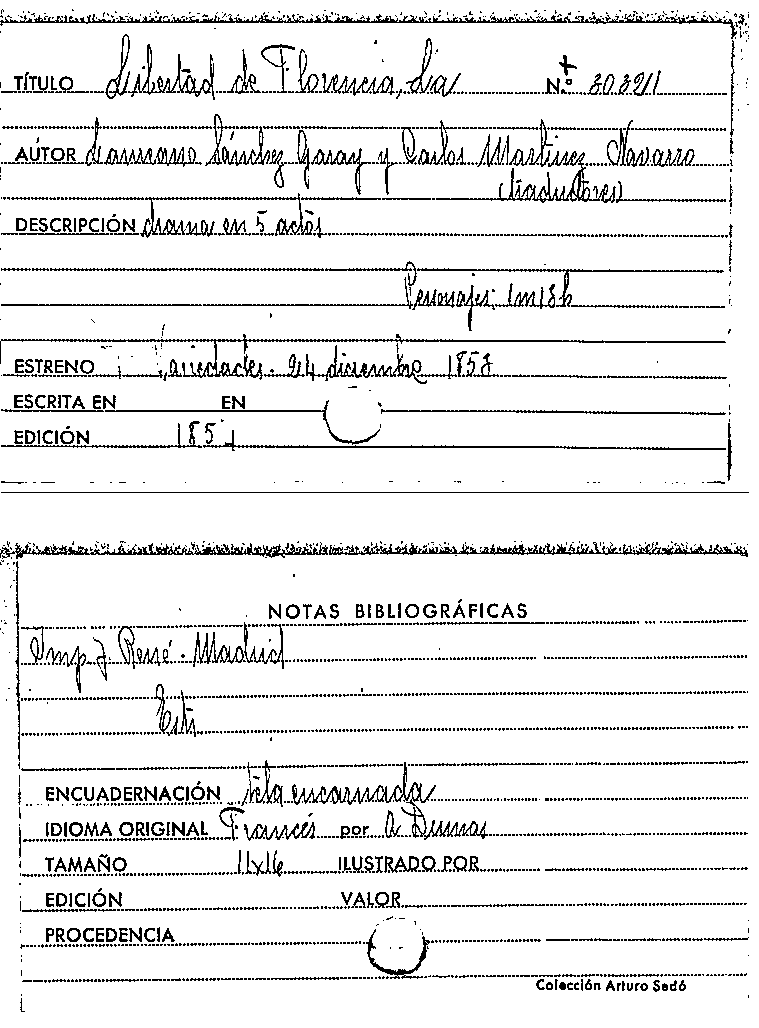 TÍTULO Libertad de Florencia, La N.º 30.32/1
AUTOR Laureano Sánchez Garay y Carlos Martínez Navarro
(traductores)
DESCRIPCIÓN drama en 5 actos
Personajes: 1m 13h
ESTRENO Variedades. 24 diciembre 185
ESCRITA EN EN
EDICIÓN 185
NOTAS BIBLIOGRÁFICAS
Imp. J. René. Madrid
ENCUADERNACIÓN tela encarnada
IDIOMA ORIGINAL Francés por A Dumas
TAMAÑO 11x16 ILUSTRADO POR
EDICIÓN VALOR
PROCEDENCIA
Colección Arturo Sedó